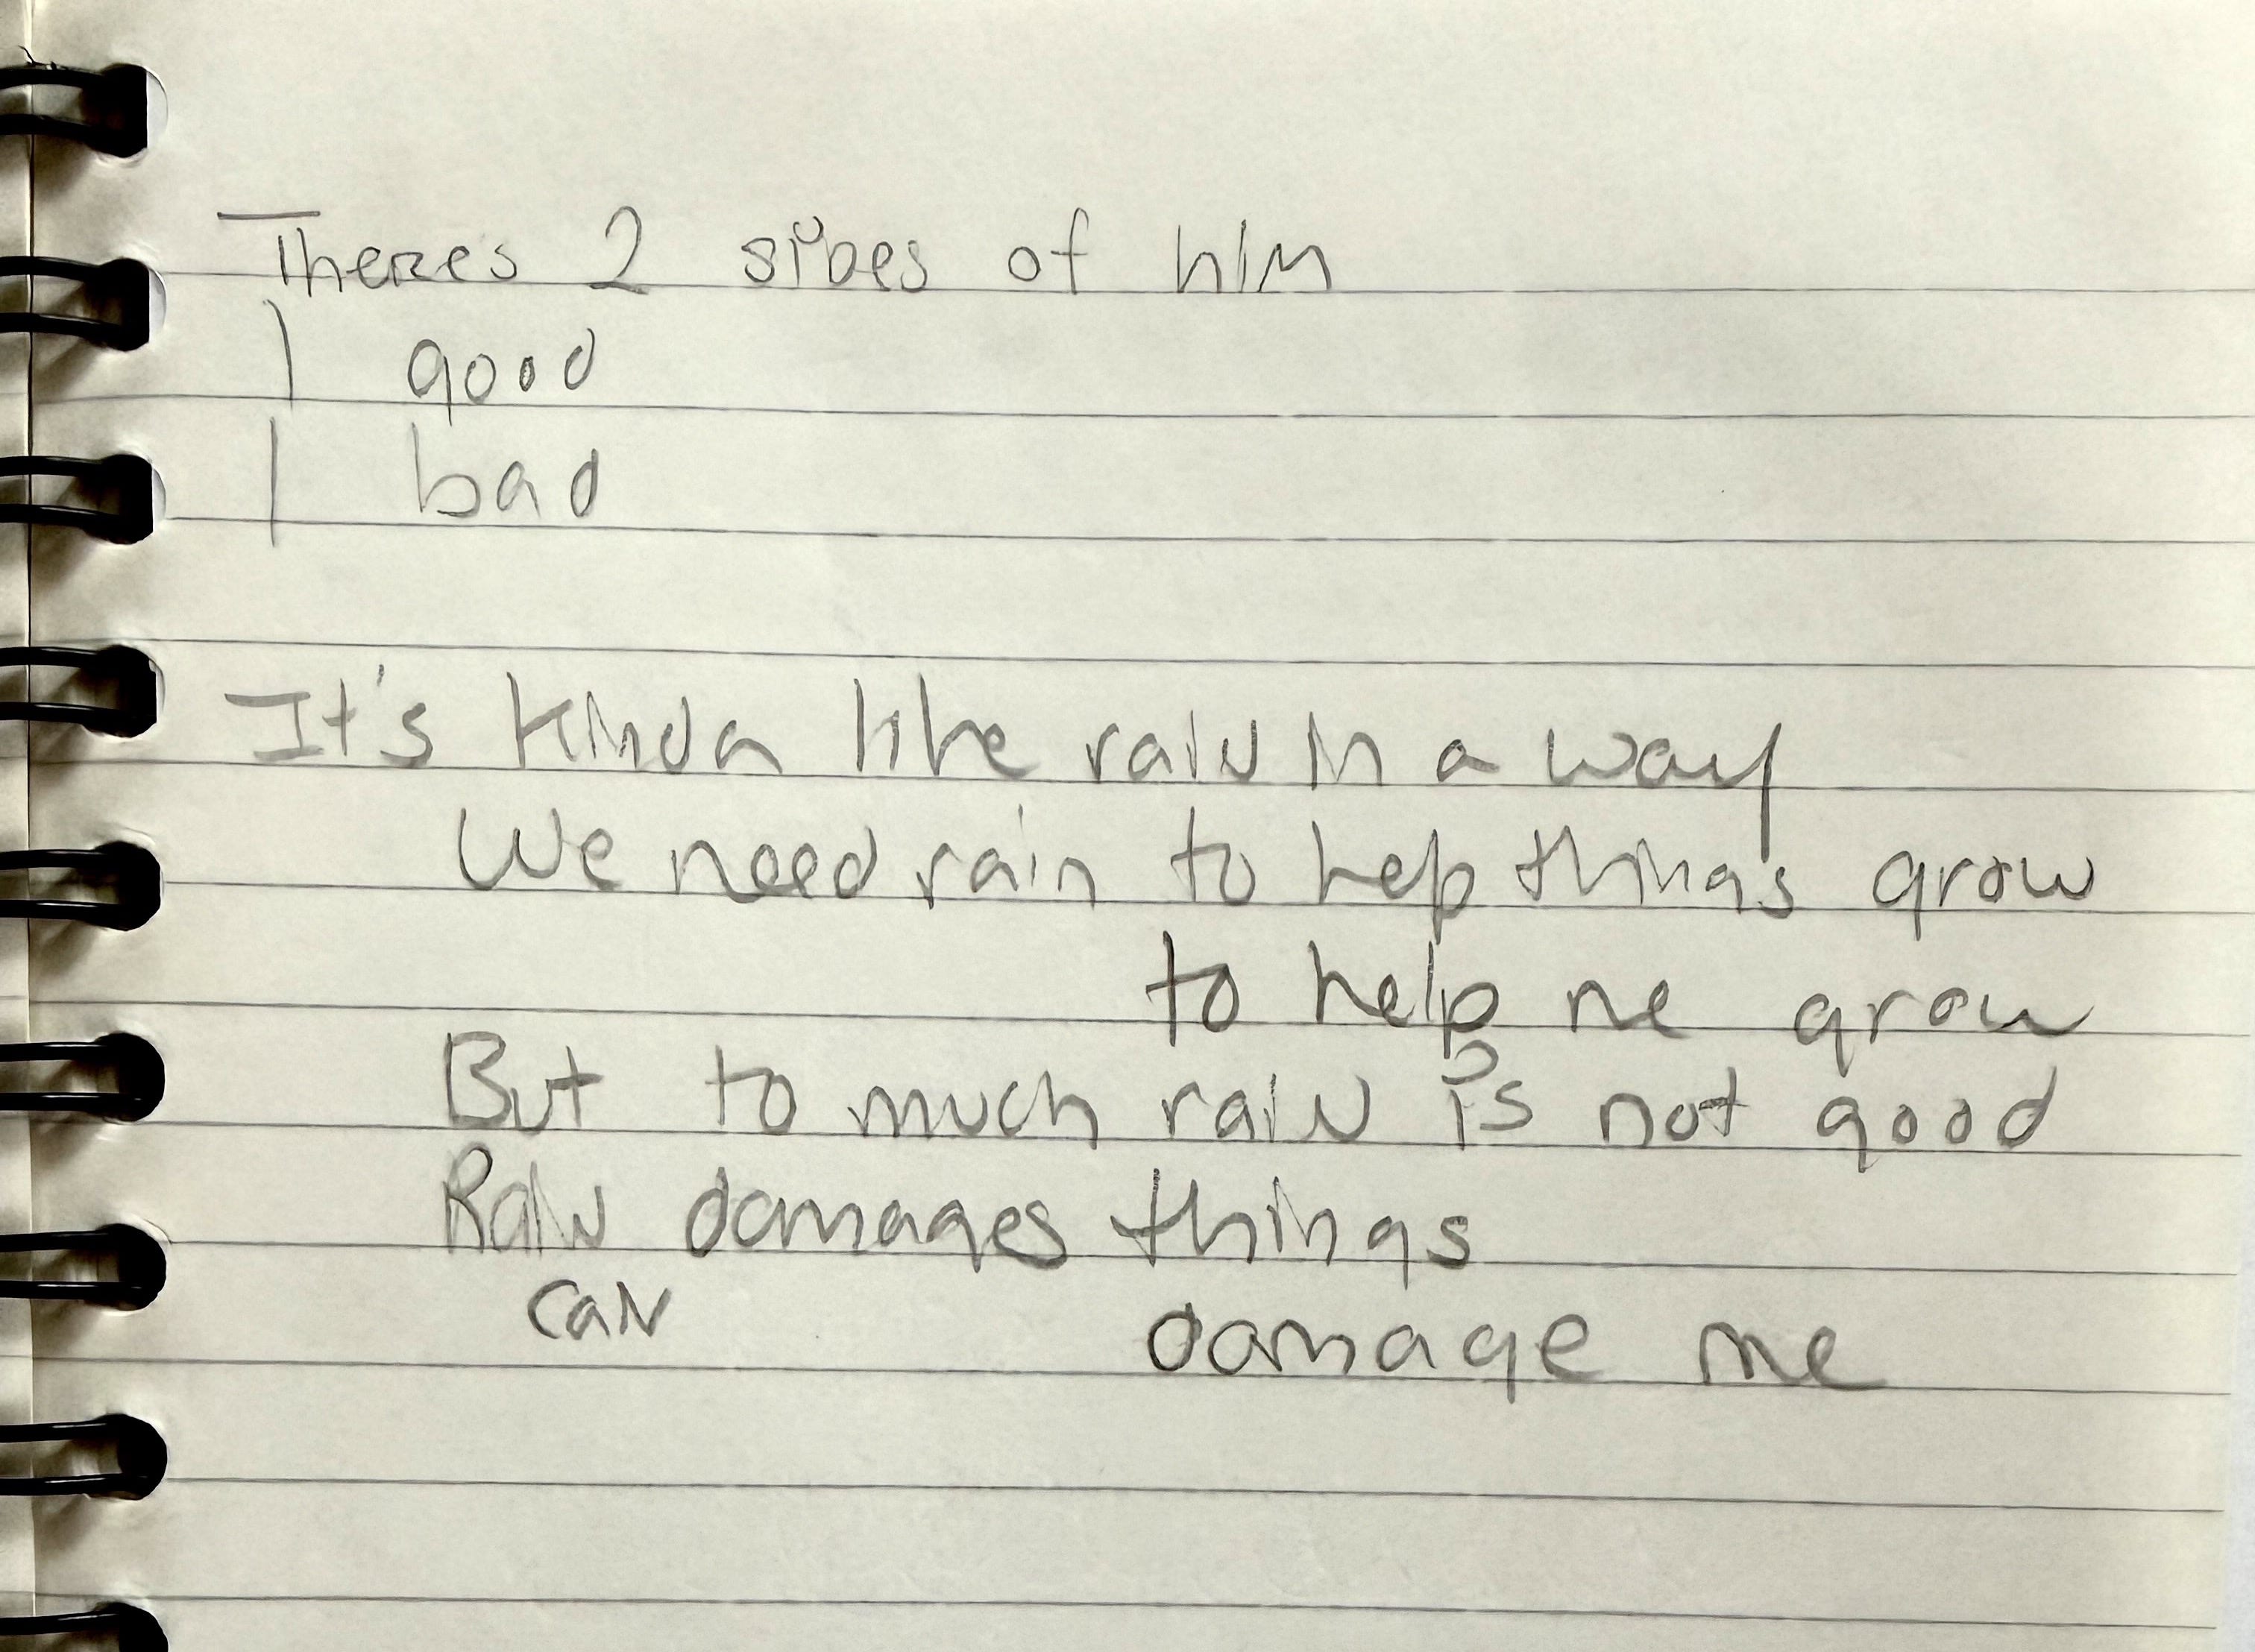 Theres 2 sides of him
1 good
1 bad
It's kinda like rain in a way
We need rain to help things grow
to help me grow
But to much rain is not good
Rain damages things
can damage me